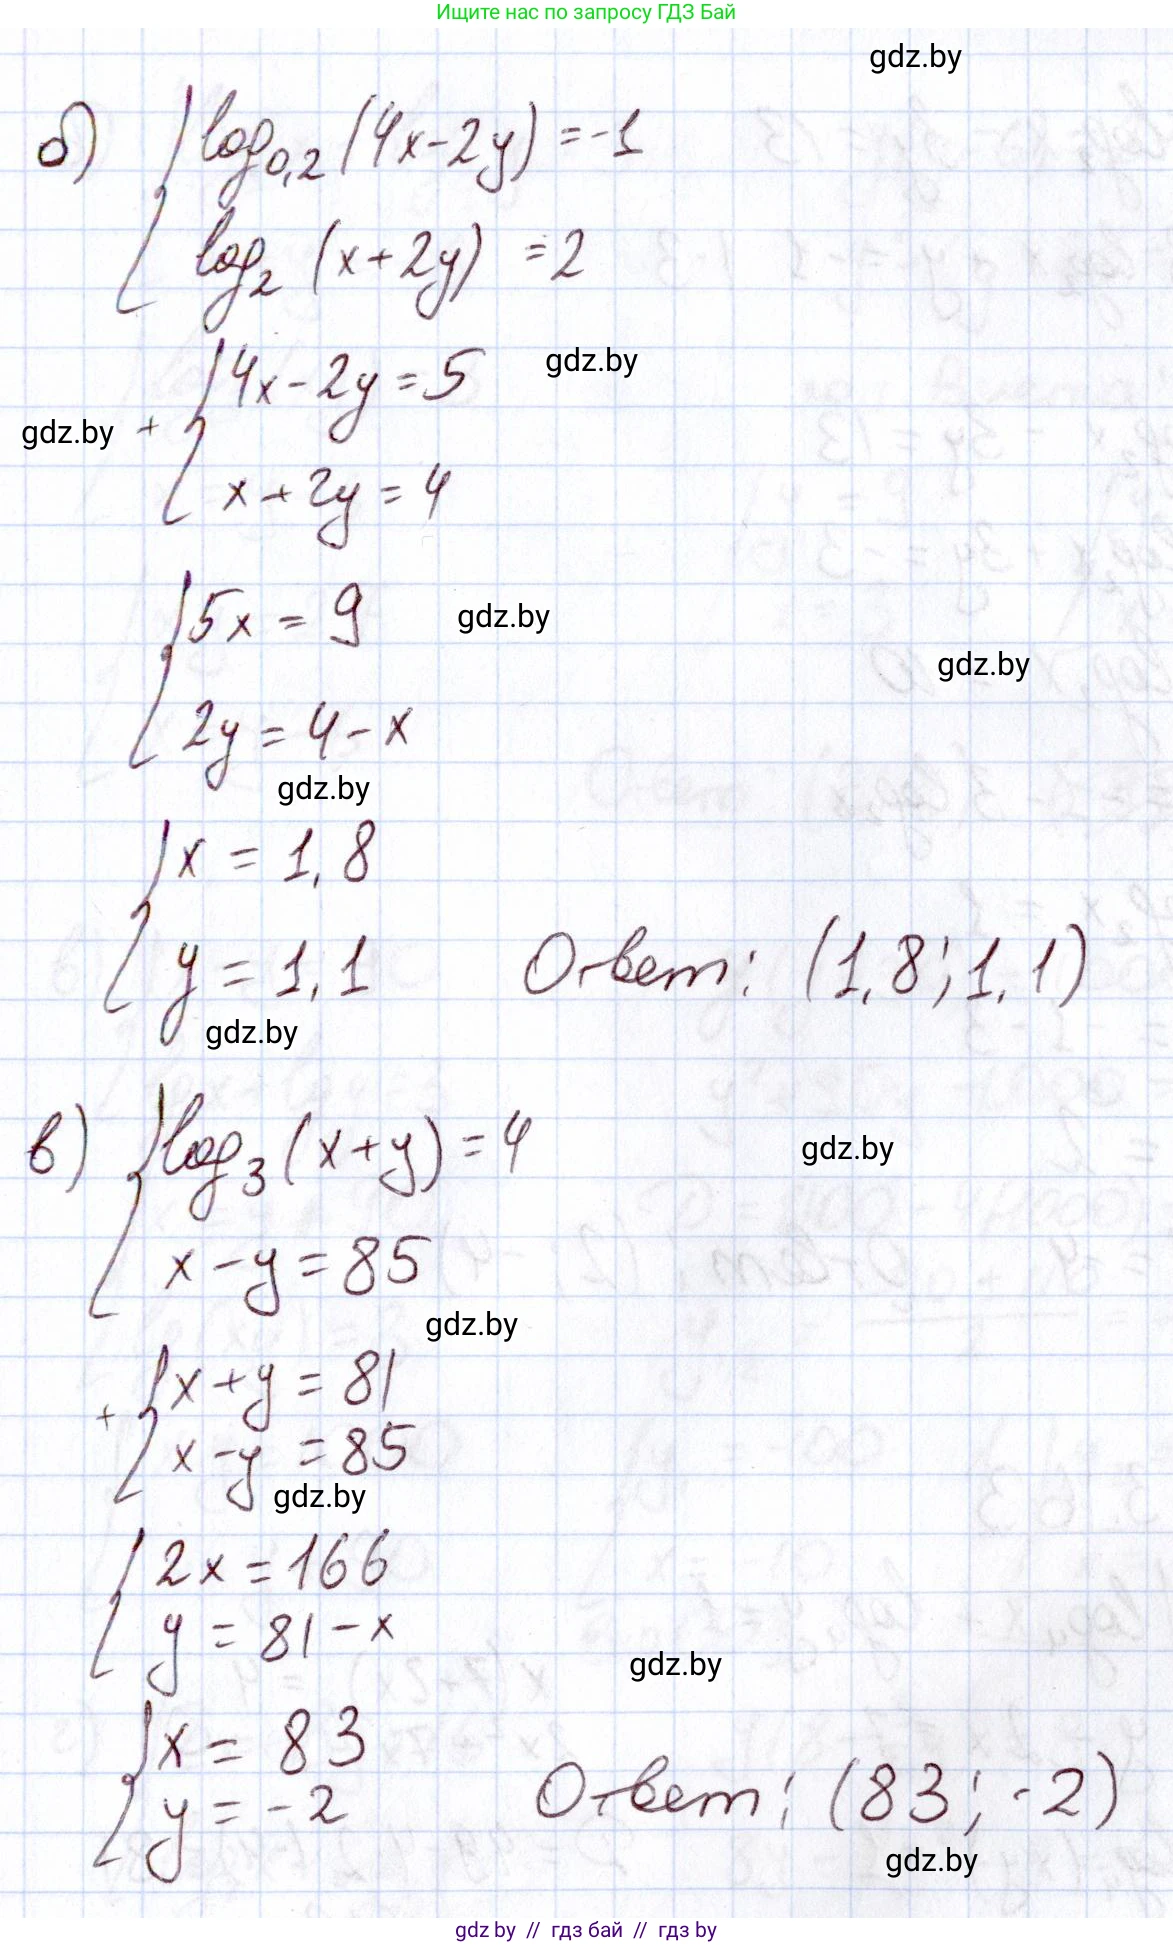 Ищите нас по запросу ГДЗ Бай
gdz.by
б) { log₀,₂ (4x-2y) = -1
log₂ (x+2y) = 2
gdz.by
+ { 4x-2y = 5
gdz.by
x+2y = 4
{ 5x = 9
gdz.by
gdz.by
2y = 4-x
gdz.by
{ x = 1,8
y = 1,1 Ответ: (1,8; 1,1)
gdz.by
в) { log₃ (x+y) = 4
gdz.by
x-y = 85
gdz.by
+ { x+y = 81
x-y = 85
gdz.by
{ 2x = 166
y = 81-x
gdz.by
{ x = 83
y = -2 Ответ: (83; -2)
gdz.by
gdz by // гдз бай // gdz by